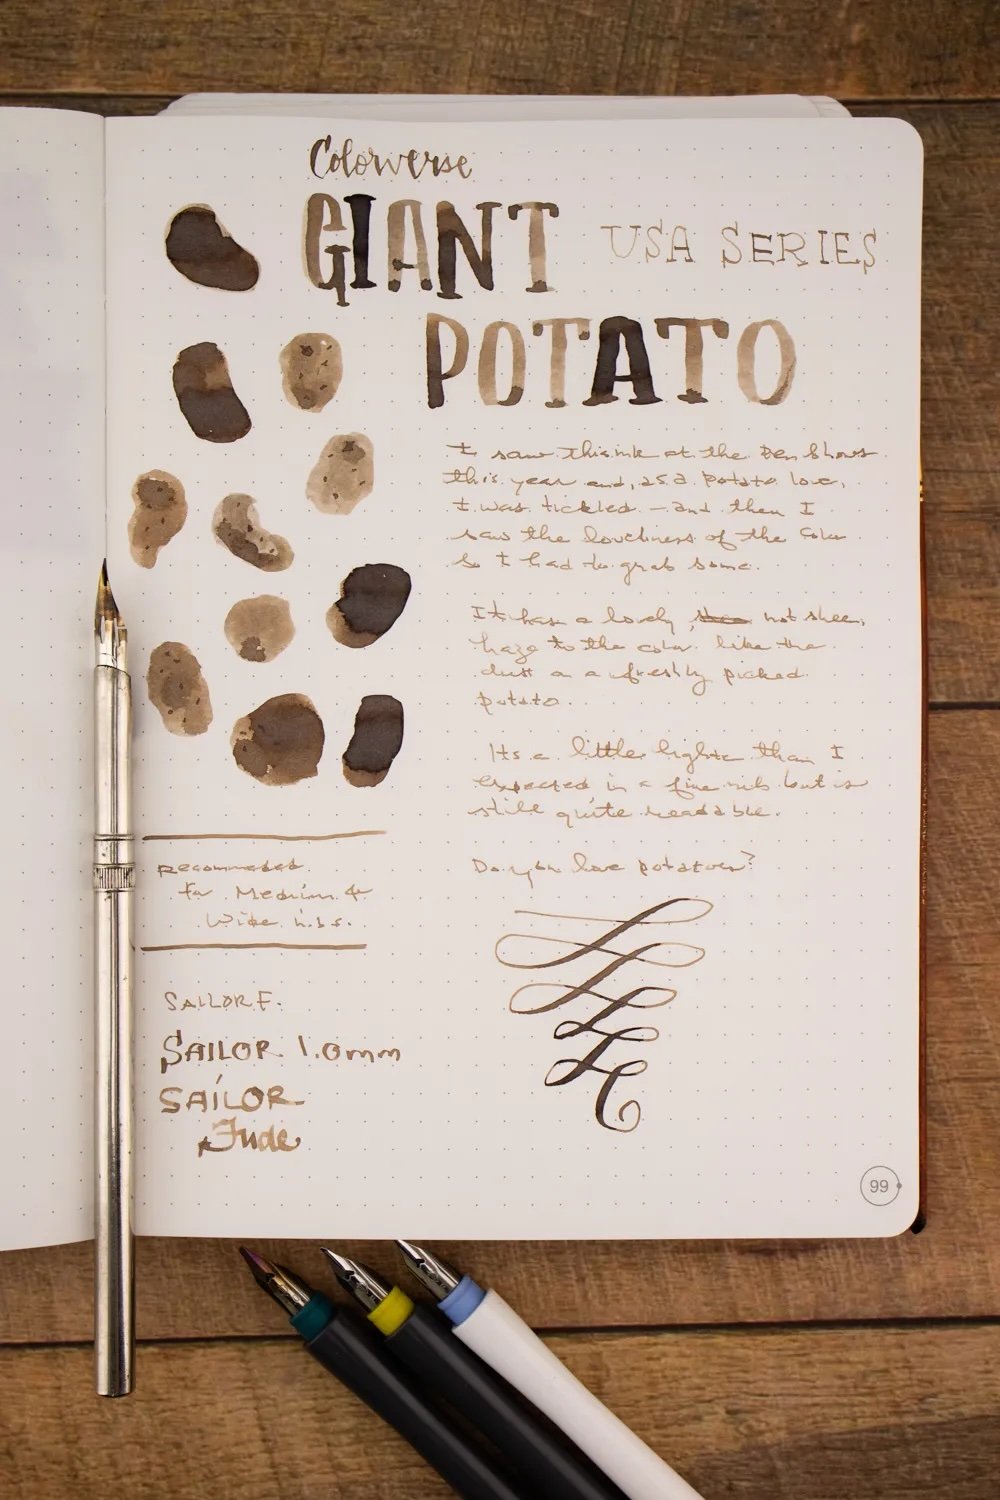 Colorverse
GIANT USA SERIES
POTATO
I saw this ink at the Pen Shows
this year and, as a potato love,
I was tickled – and then I
saw the loveliness of the color
so I had to grab some.
It has a lovely, not sheen,
haze to the color like the
dust on a freshly picked
potato.
Its a little lighter than I
expected in a fine nib but is
still quite readable.
Do you love potatoes?
Recommended
for Medium &
Wide nibs.
SAILOR F.
SAILOR 1.0mm
SAILOR
Fude
99